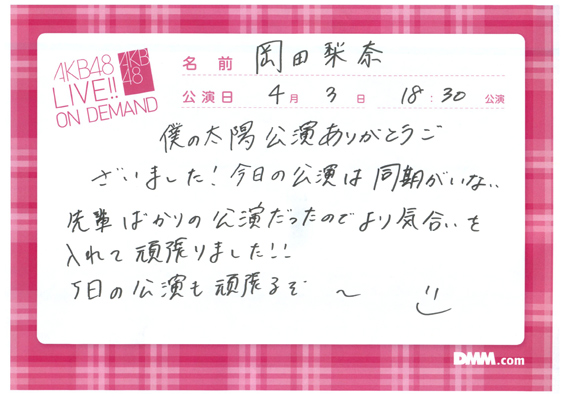 AKB48
LIVE!!
ON DEMAND
AKB
48
名前 岡田梨奈
公演日 4月3日 18:30公演
僕の太陽公演ありがとうご
ざいました!今日の公演は同期がいない
先輩ばかりの公演だったのでより気合いを
入れて頑張りました!!
5日の公演も頑張るぞ〜
DMM.com